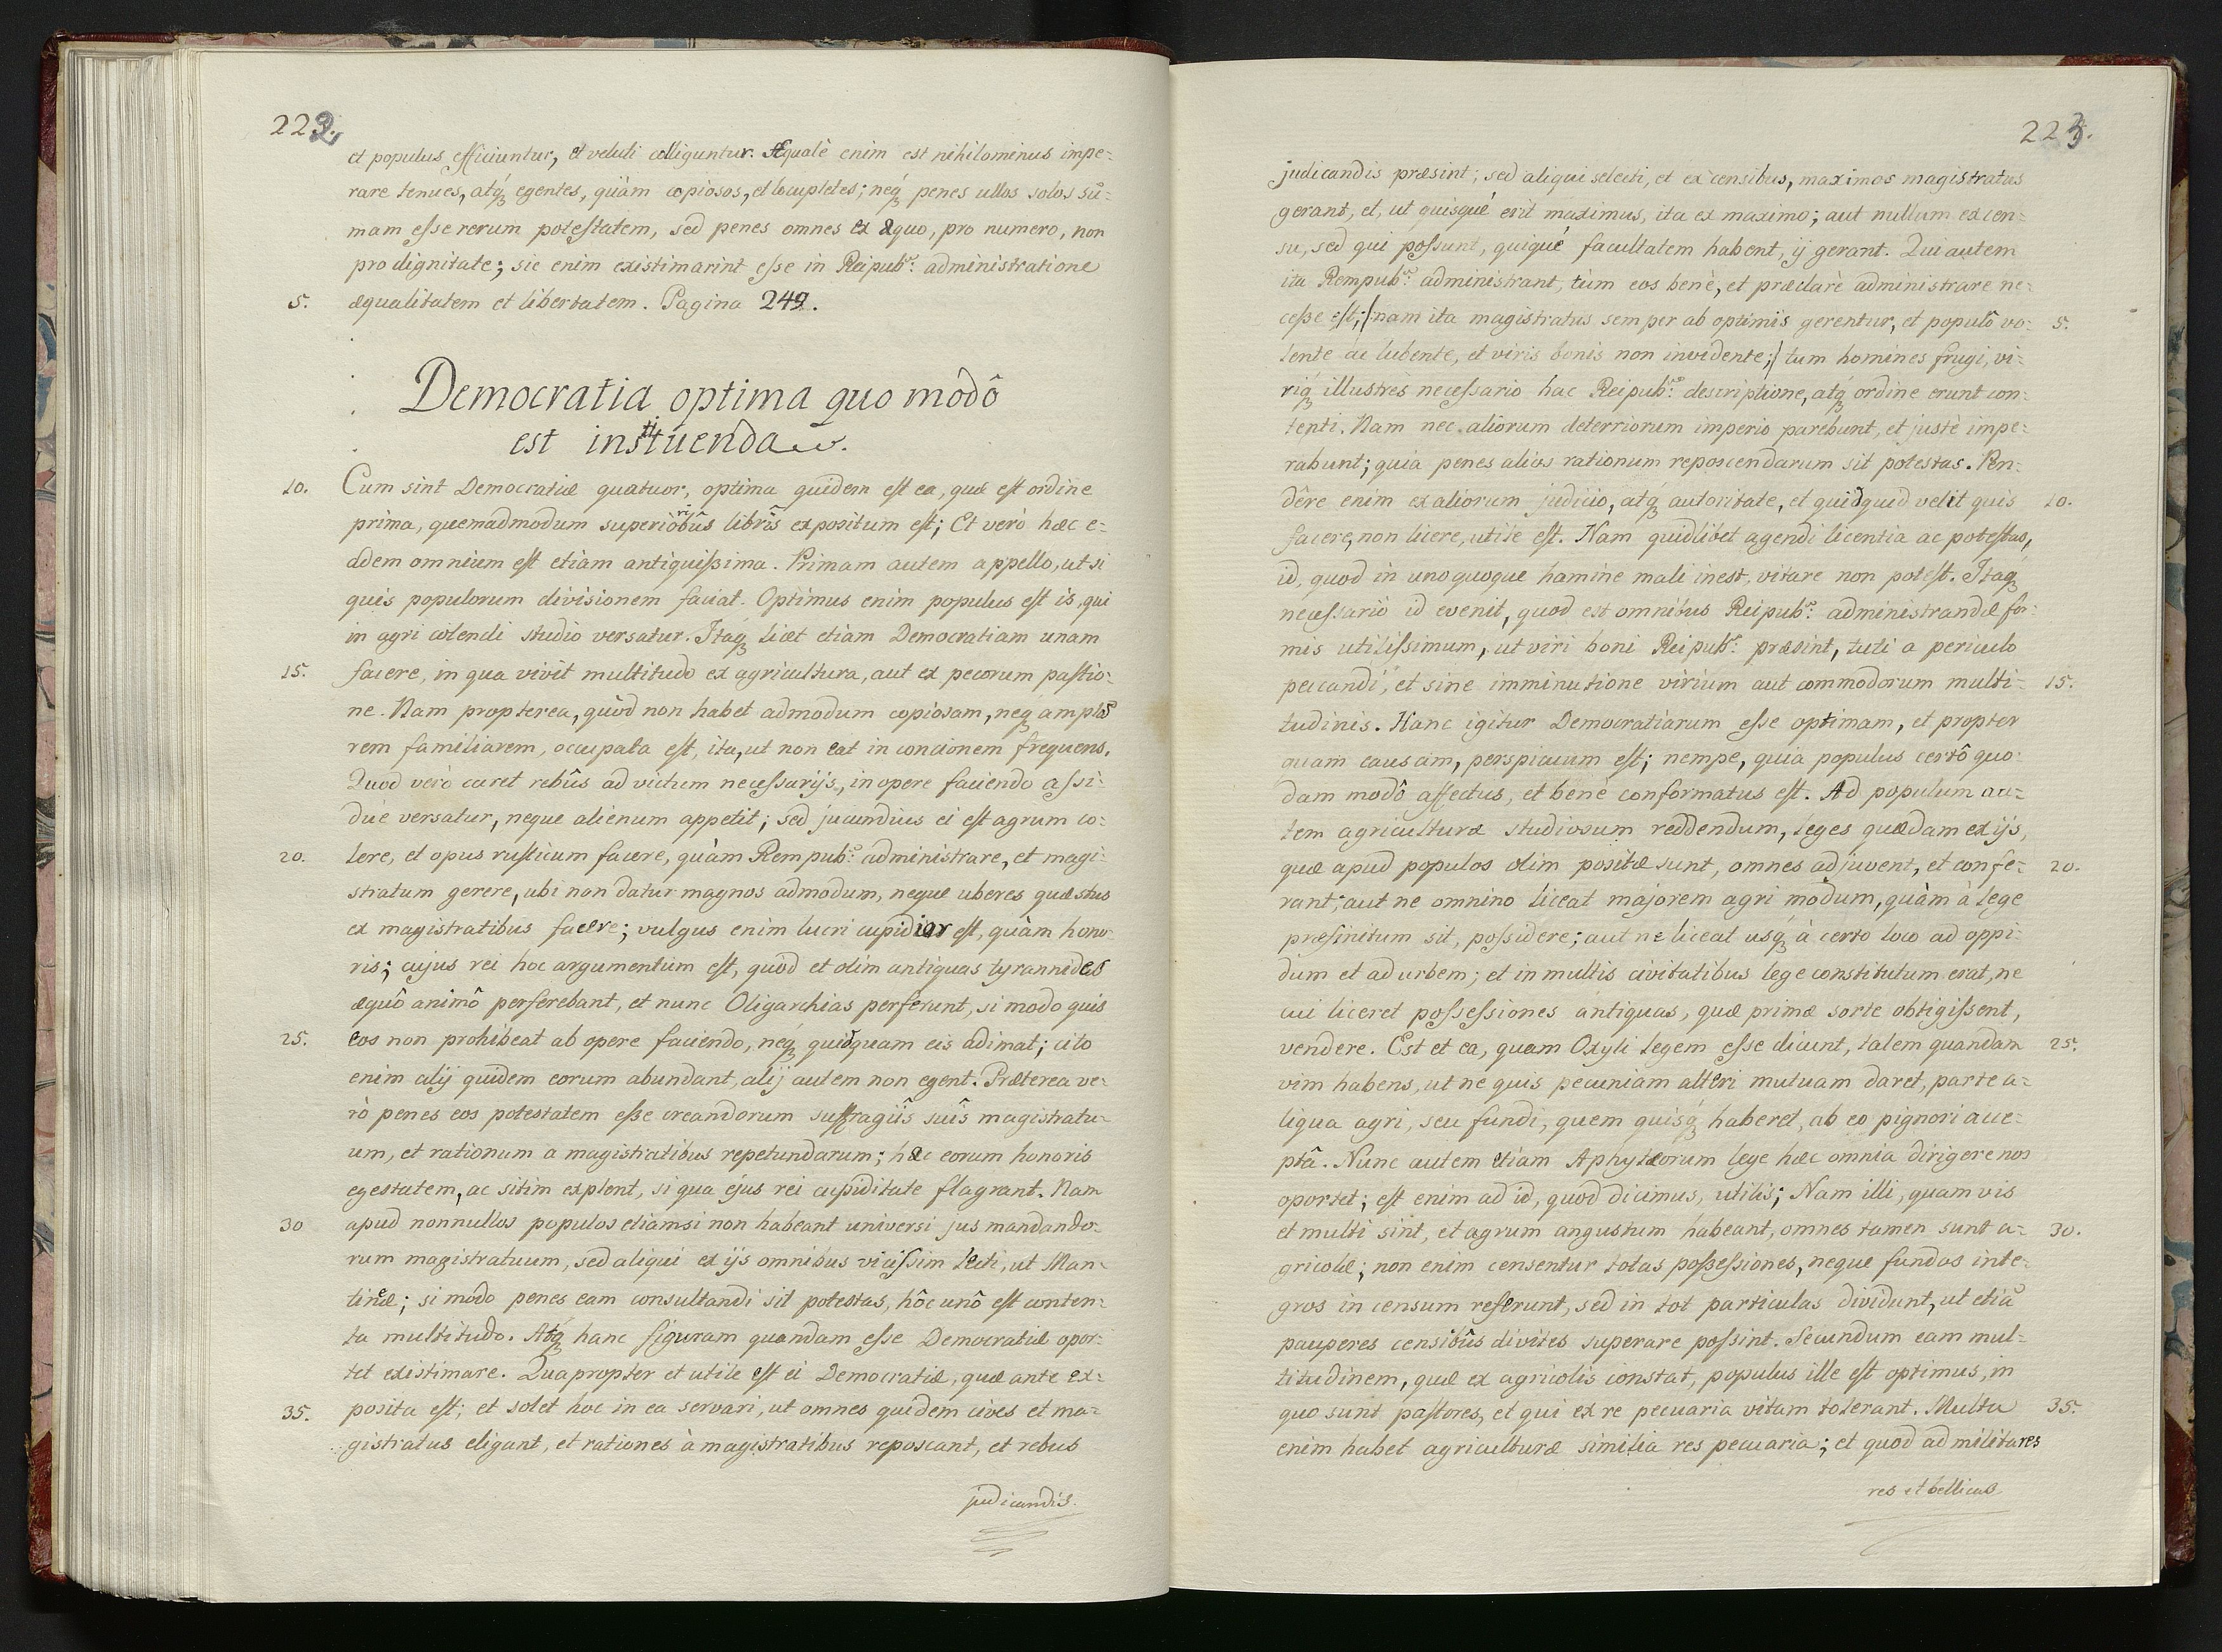 222.
et populus efficiuntur, et veluti colliguntur. Æqualè enim est nihilominus impe-
rare tenues, atq́ꝫ egentes, quàm copiosos, et locupletes; neq́ꝫ penes ullos solos sū-
mam esse rerum potestatem, sed penes omnes ex æquo, pro numero, non
pro dignitate; sic enim existimarint esse in Reipub: administratione
5. æqualitatem et libertatem. Pagina 249.
Democratia optima quo modô
est instituenda.
10. Cum sint Democratiæ quatuor, optima quidem est ea, quæ est ordine
prima, quemadmodum superioribûs librîs expositum est; Et verò hæc e-
adem omnium est etiam antiquissima. Primam autem appello, ut si
quis populorum divisionem faciat. Optimus enim populus est is, qui
in agri colendi studio versatur. Itaq́ꝫ licet etiam Democratiam unam
15. facere, in qua vivit multitudo ex agricultura, aut ex pecorum pastio-
ne. Nam propterea, quòd non habet admodum copiosam, neqꝫ amplā
rem familiarem, occupata est, ita, ut non eat in concionem frequens.
Quod verò caret rebûs ad victum necessarijs, in opere faciendo assi-
duè versatur, neque alienum appetit; sed jucundius ei est agrum co-
20. lere, et opus rusticum facere, quàm Rempub: administrare, et magi-
stratum gerere, ubi non datur magnos admodum, neque uberes quæstus
ex magistratibus facere; vulgus enim lucri cupidior est, quàm hono-
ris; cujus rei hoc argumentum est, quòd et olim antiquas tyrannides
æquô animô perferebant, et nunc Oligarchias perferunt, si modo quis
25. eos non prohibeat ab opere faciendo, neq́ꝫ quidquam eis adimat; cito
enim alij quidem eorum abundant, alij autem non egent. Præterea ve-
rò penes eos potestatem esse creandorum suffragiîs suîs magistratu-
um, et rationum a magistratibus repetundarum; hæc eorum honoris
egestatem, ac sitim explent, si qua ejus rei cupiditate flagrant. Nam
30 apud nonnullos populos etiamsi non habeant universi jus mandando-
rum magistratuum, sed aliqui ex ijs omnibus vicissim lecti, ut Man-
tineæ; si modo penes eam consultandi sit potestas, hôc unô est conten-
ta multitudo. Atq́ꝫ hanc figuram quandam esse Democratiæ opor-
tet existimare. Quapropter et utile est ei Democratiæ, quæ ante ex-
35. posita est; et solet hoc in ea servari, ut omnes quidem cives et ma-
gistratus eligant, et rationes à magistratibus reposcant, et rebus
judicandis.
223.
judicandis præsint; sed aliqui selecti, et ex censibus, maximos magistratus
gerant, et, ut quisque erit maximus, ita ex maximo; aut nullum ex cen-
su, sed qui possunt, quique facultatem habent, ij gerant. Qui autem
ita Rempub: administrant, tùm eos benè, et præclarè administrare ne-
cesse est; (nam ita magistratus semper ab optimis gerentur, et populô vo- 5.
lente ac lubente, et viris bonis non invidente;) tum homines frugi, vi-
riq́ꝫ illustres necessario hac Reipub: descriptione, atq́ꝫ ordine erunt con-
tenti. Nam nec aliorum deteriorum imperio parebunt, et justè impe-
rabunt; quia penes alios rationum reposcendarum sit potestas. Pen-
dêre enim ex aliorum judicio, atq́ꝫ autoritate, et quidquid velit quis 10.
facere, non licere, utile est. Nam quidlibet agendi licentia ac potestas,
id, quod in unoquoque homine mali inest, vitare non potest. Itaq́ꝫ
necessariò id evenit, quod est omnibus Reipub: administrandæ for-
mis utilissimum, ut viri boni Reipub: præsint, tuti a periculo
peccandi, et sine imminutione virium aut commodorum multi- 15.
tudinis. Hanc igitur Democratiarum esse optimam, et propter
quam causam, perspicuum est; nempe, quia populus certô quo-
dam modô affectus, et benè conformatus est. Ad populum au-
tem agriculturæ studiosum reddendum, leges quædam ex ijs,
quæ apud populos olim positæ sunt, omnes adjuvent, et confe- 20.
rant; aut ne omnino liceat majorem agri modum, quàm à lege
præfinitum sit, possidere; aut ne liceat usq́ꝫ à certo loco ad oppi-
dum et ad urbem; et in multis civitatibus lege constitutum erat, ne
cui liceret possessiones antiquas, quæ primæ sorte obtigissent,
vendere. Est et ea, quam Oxyli legem esse dicunt, talem quandam 25.
vim habens, ut ne quis pecuniam alteri mutuam daret, parte a-
liqua agri, seu fundi, quem quisq́ꝫ haberet, ab eo pignori acce-
ptâ. Nunc autem etiam Aphytæorum lege hæc omnia dirigere nos
oportet; est enim ad id, quod dicimus, utilis; Nam illi, quam vis
et multi sint, et agrum angustum habeant, omnes tamen sunt a- 30.
gricolæ; non enim censentur totas possessiones, neque fundos inte-
gros in censum referunt, sed in tot particulas dividunt, ut etiā
pauperes censibûs divites superare possint. Secundum eam mul-
titudinem, quæ ex agricolis constat, populus ille est optimus, in
quo sunt pastores, et qui ex re pecuaria vitam tolerant. Multa 35.
enim habet agriculturæ similia res pecuaria; et quod ad militares
res et bellicas